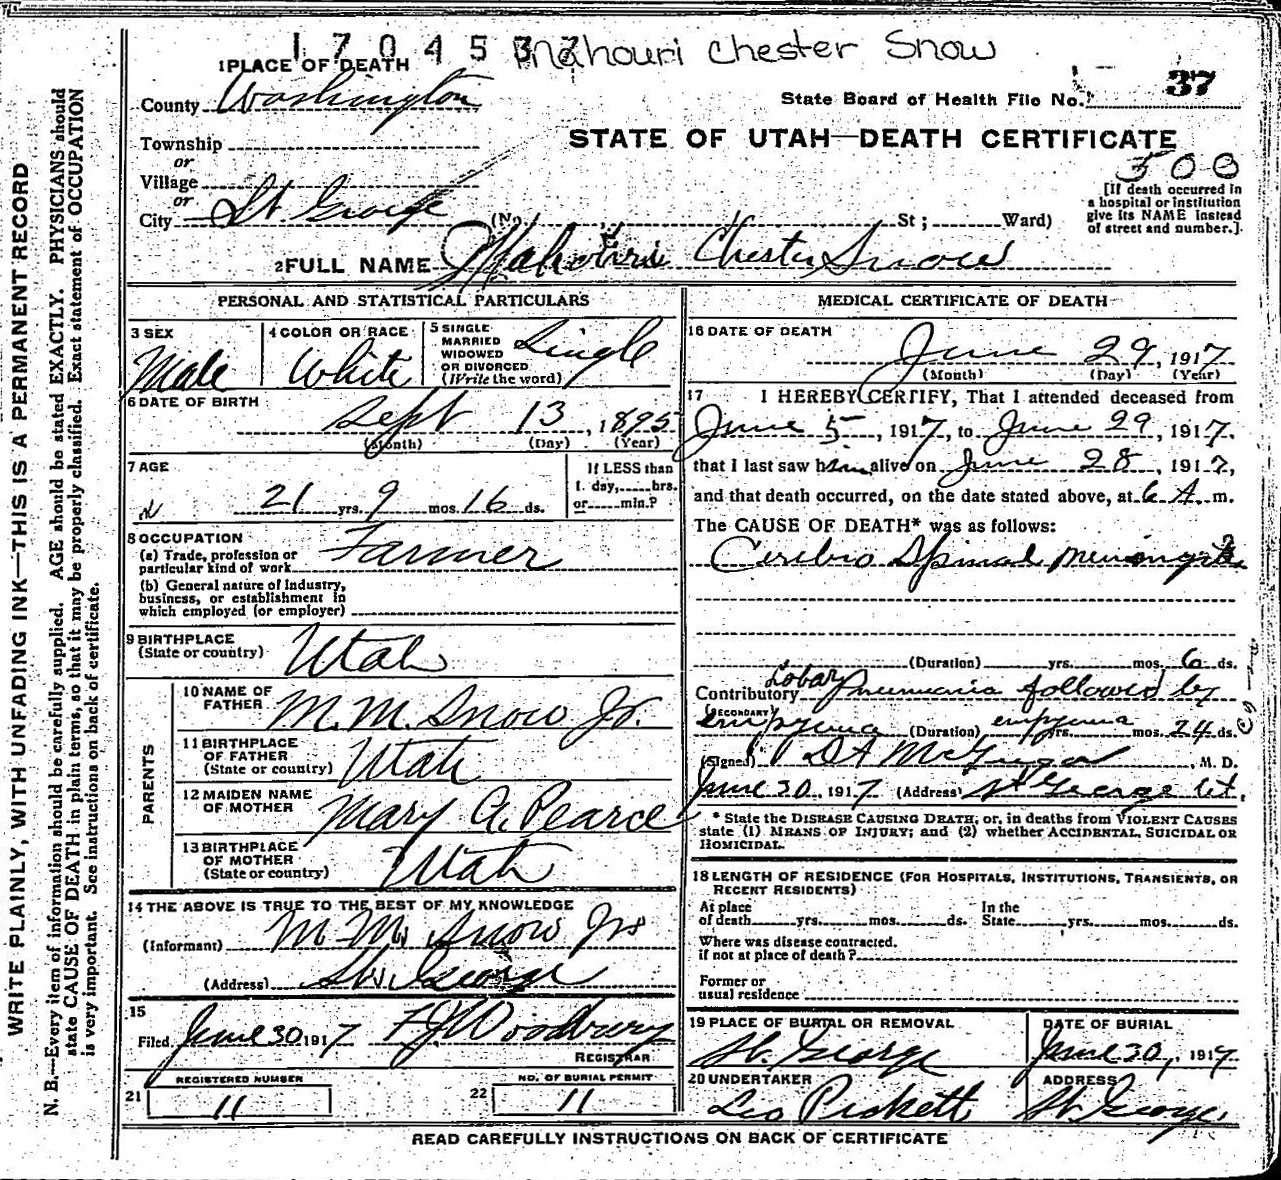 1 7 0 4 5 3 7 Mahouri Chester Snow
1 PLACE OF DEATH
County Washington
State Board of Health File No. 37
Township
STATE OF UTAH—DEATH CERTIFICATE
or
Village
300
or
City St. George (No. St; Ward)
[If death occurred in a hospital or institution give its NAME instead of street and number.]
2 FULL NAME Mahonri Chester Snow
PERSONAL AND STATISTICAL PARTICULARS
3 SEX Male
4 COLOR OR RACE White
5 SINGLE MARRIED WIDOWED OR DIVORCED (Write the word) Single
6 DATE OF BIRTH Sept 13, 1895
(Month) (Day) (Year)
7 AGE
21 yrs. 9 mos. 16 ds.
If LESS than 1 day, hrs. or min.?
8 OCCUPATION
(a) Trade, profession or particular kind of work Farmer
(b) General nature of Industry, business, or establishment in which employed (or employer)
9 BIRTHPLACE
(State or country) Utah
PARENTS
10 NAME OF FATHER M. M. Snow Jr.
11 BIRTHPLACE OF FATHER (State or country) Utah
12 MAIDEN NAME OF MOTHER Mary A. Pearce
13 BIRTHPLACE OF MOTHER (State or country) Utah
14 THE ABOVE IS TRUE TO THE BEST OF MY KNOWLEDGE
(Informant) M. M. Snow Jr
(Address) St. George
15
Filed June 30, 1917 F J Woodbury
REGISTRAR
REGISTERED NUMBER
21 11
NO. OF BURIAL PERMIT
22 11
MEDICAL CERTIFICATE OF DEATH
16 DATE OF DEATH
June 29, 1917
(Month) (Day) (Year)
17 I HEREBY CERTIFY, That I attended deceased from
June 5, 1917, to June 29, 1917.
that I last saw him alive on June 28, 1917,
and that death occurred, on the date stated above, at 6 A m.
The CAUSE OF DEATH* was as follows:
Cerebro Spinal Meningitis
(Duration) yrs. mos. 6 ds.
Contributory Lobar Pneumonia followed by
SECONDARY empyema (Duration) empyema yrs. mos. 24 ds.
(Signed) D A McGregor, M. D.
June 30, 1917 (Address) St George Ut.
* State the DISEASE CAUSING DEATH; or, in deaths from VIOLENT CAUSES
state (1) MEANS OF INJURY; and (2) whether ACCIDENTAL, SUICIDAL OR
HOMICIDAL.
18 LENGTH OF RESIDENCE (FOR HOSPITALS, INSTITUTIONS, TRANSIENTS, OR
RECENT RESIDENTS)
At place of death yrs. mos. ds. In the State yrs. mos. ds.
Where was disease contracted.
if not at place of death?
Former or
usual residence
19 PLACE OF BURIAL OR REMOVAL St. George
DATE OF BURIAL June 30, 1917
20 UNDERTAKER Leo Pickett
ADDRESS St. George
READ CAREFULLY INSTRUCTIONS ON BACK OF CERTIFICATE
WRITE PLAINLY, WITH UNFADING INK—THIS IS A PERMANENT RECORD
N. B.—Every item of information should be carefully supplied. AGE should be stated EXACTLY. PHYSICIANS should
state CAUSE OF DEATH in plain terms, so that it may be properly classified. Exact statement of OCCUPATION
is very important. See instructions on back of certificate.